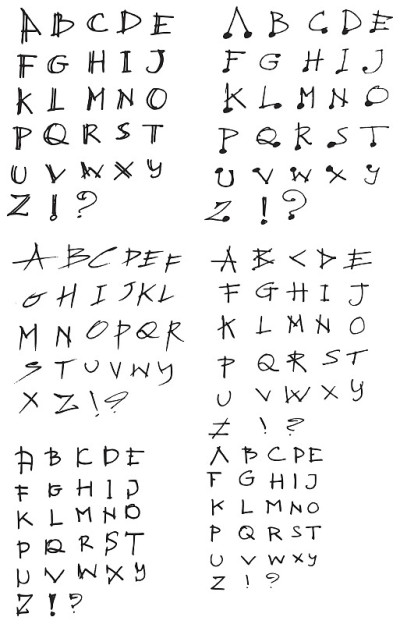 A B C D E
F G H I J
K L M N O
P Q R S T
U V W X Y
Z ! ?
A B C D E
F G H I J
K L M N O
P Q R S T
U V W X Y
Z ! ?
A B C D E F
G H I J K L
M N O P Q R
S T U V W Y
X Z ! ?
A B C D E
F G H I J
K L M N O
P Q R S T
U V W X Y
Z ! ?
A B C D E
F G H I J
K L M N O
P Q R S T
U V W X Y
Z ! ?
A B C D E
F G H I J
K L M N O
P Q R S T
U V W X Y
Z ! ?